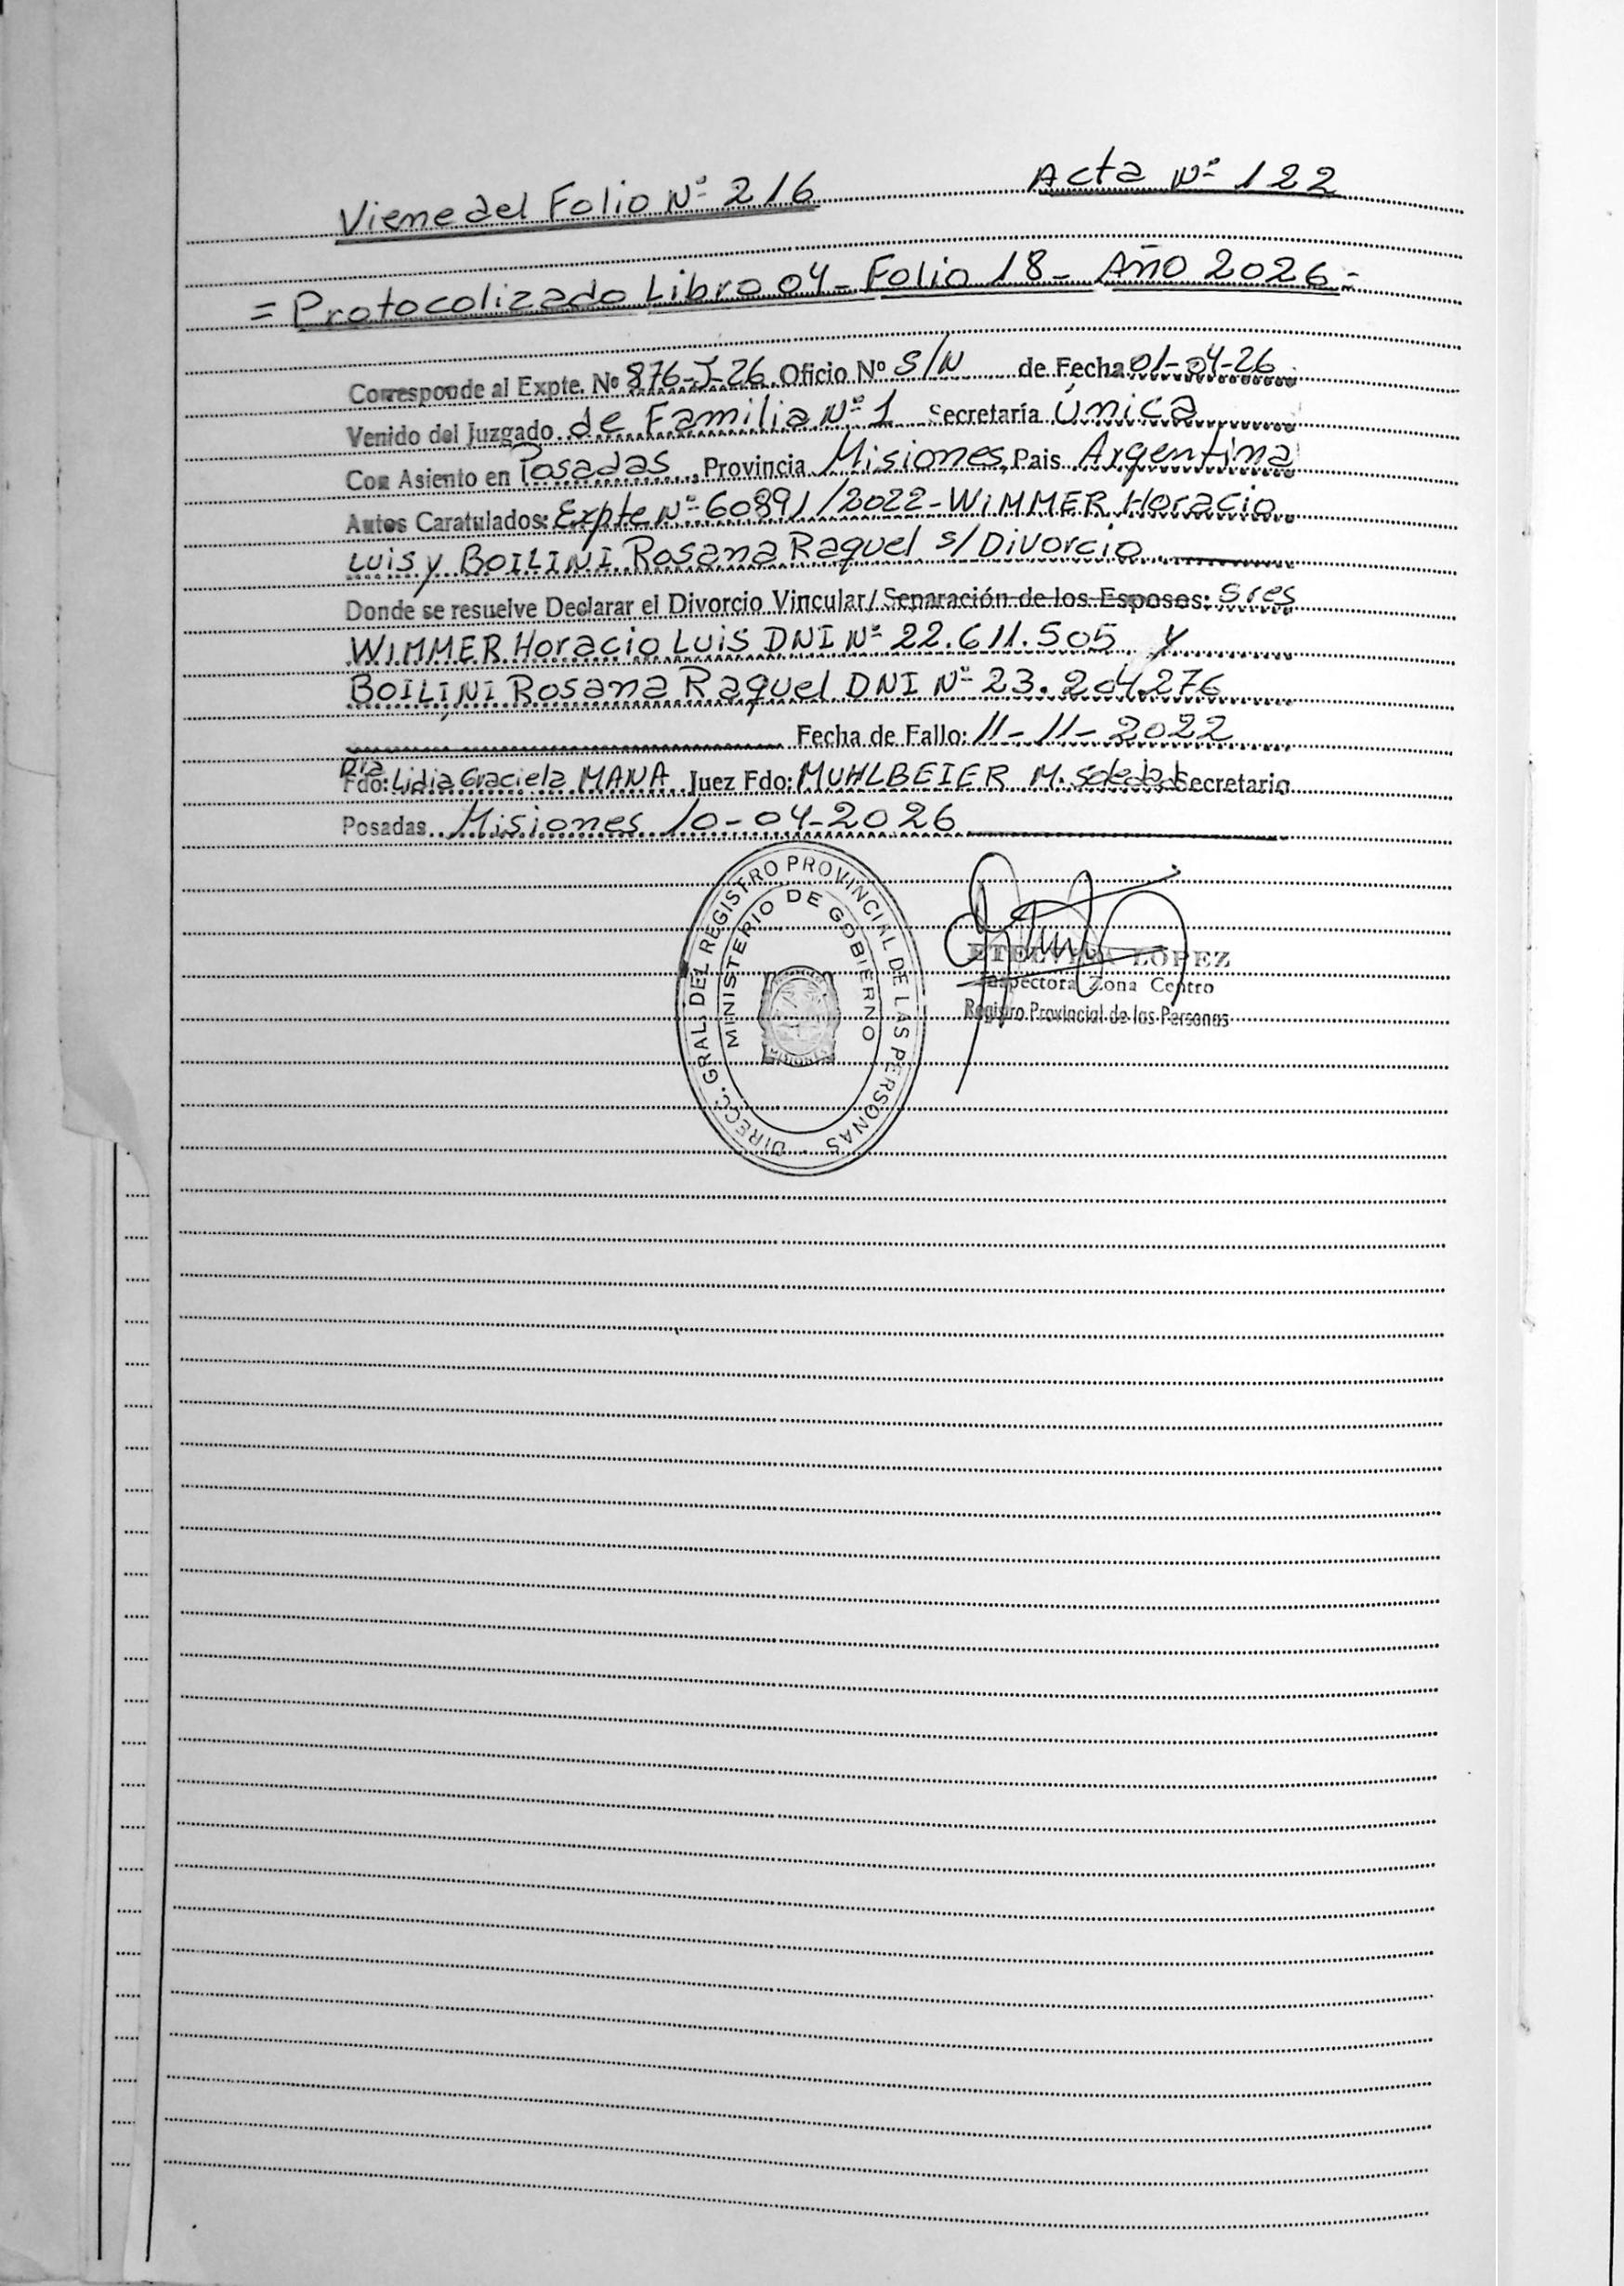 Viene del Folio Nº 216 Acta Nº 122
= Protocolizado Libro 04 - Folio 18 - Año 2026 -
Corresponde al Expte. Nº 876-J-26 Oficio Nº S/N de Fecha 01-04-26
Venido del Juzgado de Familia Nº 1 Secretaría Única
Con Asiento en Posadas, Provincia Misiones, Pais Argentina
Autos Caratulados: Expte Nº 60891/2022 - WIMMER Horacio
Luis y BOILINI Rosana Raquel s/ Divorcio
Donde se resuelve Declarar el Divorcio Vincular/ Separación de los Esposos: Sres
WIMMER Horacio Luis DNI Nº 22.611.505 y
BOILINI Rosana Raquel DNI Nº 23.204.276
Fecha de Fallo: 11-11-2022
Dra
Fdo: Lidia Graciela MANA Juez Fdo: MUHLBEIER M. Secretario
Posadas Misiones 10-04-2026
DIRECC. GRAL. DEL REGISTRO PROVINCIAL DE LAS PERSONAS
MINISTERIO DE GOBIERNO
MISIONES
LOPEZ
Inspectora Zona Centro
Registro Provincial de las Personas